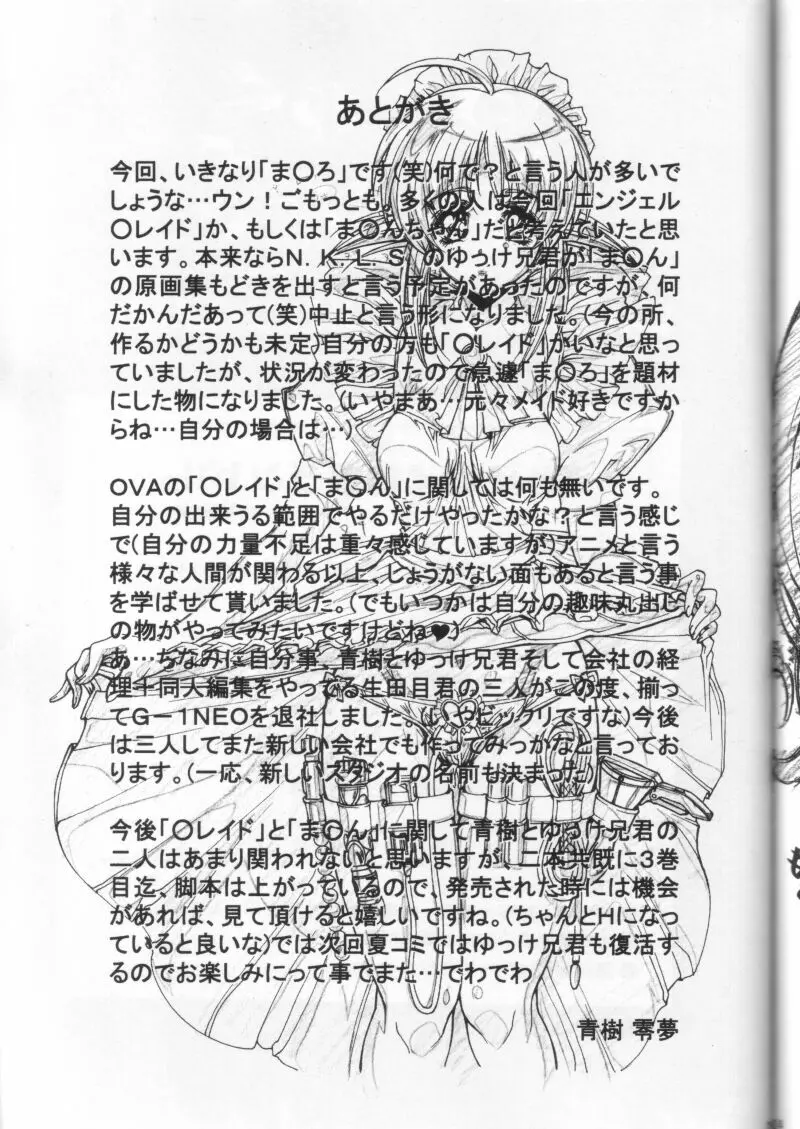 あとがき
今回、いきなり「ま〇ろ」です(笑)何で？と言う人が多いで
しょうな…ウン！ごもっとも。多くの人は今回「エンジェル
〇レイド」か、もしくは「ま〇んちゃん」だと考えていたと思
います。本来ならN．K．L．S．のゆっけ兄君が「ま〇ん」
の原画集もどきを出すと言う予定があったのですが、何
だかんだあって(笑)中止と言う形になりました。(今の所、
作るかどうかも未定)自分の方も「〇レイド」かいなと思っ
ていましたが、状況が変わったので急遽「ま〇ろ」を題材
にした物になりました。(いやまあ…元々メイド好きですか
らね…自分の場合は…)
OVAの「〇レイド」と「ま〇ん」に関しては何も無いです。
自分の出来うる範囲でやるだけやったかな？と言う感じ
で(自分の力量不足は重々感じていますが)アニメと言う
様々な人間が関わる以上、しょうがない面もあると言う事
を学ばせて貰いました。(でもいつかは自分の趣味丸出し
の物がやってみたいですけどね♥)
あ…ちなみに自分事、青樹とゆっけ兄君そして会社の経
理十同人編集をやってる生田目君の三人がこの度、揃っ
てG－1NEOを退社しました。(いやビックリですな)今後
は三人してまた新しい会社でも作ってみっかなと言ってお
ります。(一応、新しいスタジオの名前も決まった)
今後「〇レイド」と「ま〇ん」に関して青樹とゆっけ兄君の
二人はあまり関われないと思いますが、二本共既に3巻
目迄、脚本は上がっているので、発売された時には機会
があれば、見て頂けると嬉しいですね。(ちゃんとHになっ
ていると良いな)では次回夏コミではゆっけ兄君も復活す
るのでお楽しみにって事でまた…でわでわ
青樹 零夢